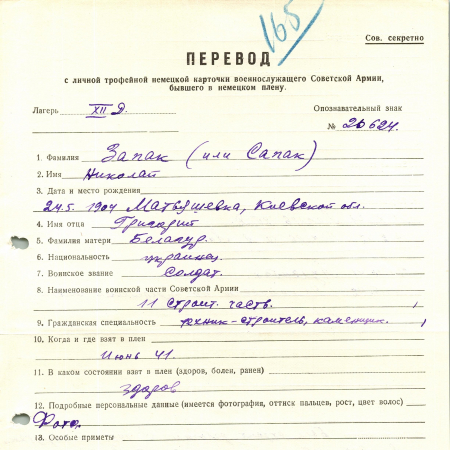 165
Сов. секретно
ПЕРЕВОД
с личной трофейной немецкой карточки военнослужащего Советской Армии,
бывшего в немецком плену.
Лагерь XII Д. Опознавательный знак
№ 20624.
1. Фамилия Запак (или Сапак)
2. Имя Николай
3. Дата и место рождения
24.5. 1904 Матвяшевка, Киевской обл.
4. Имя отца Григорий
5. Фамилия матери Белакур.
6. Национальность украинец
7. Воинское звание Солдат.
8. Наименование воинской части Советской Армии
11 строит. часть.
9. Гражданская специальность техник-строитель, каменщик.
10. Когда и где взят в плен
Июнь 41.
11. В каком состоянии взят в плен (здоров, болен, ранен)
здоров
12. Подробные персональные данные (имеется фотография, оттиск пальцев, рост, цвет волос)
Фото.
13. Особые приметы